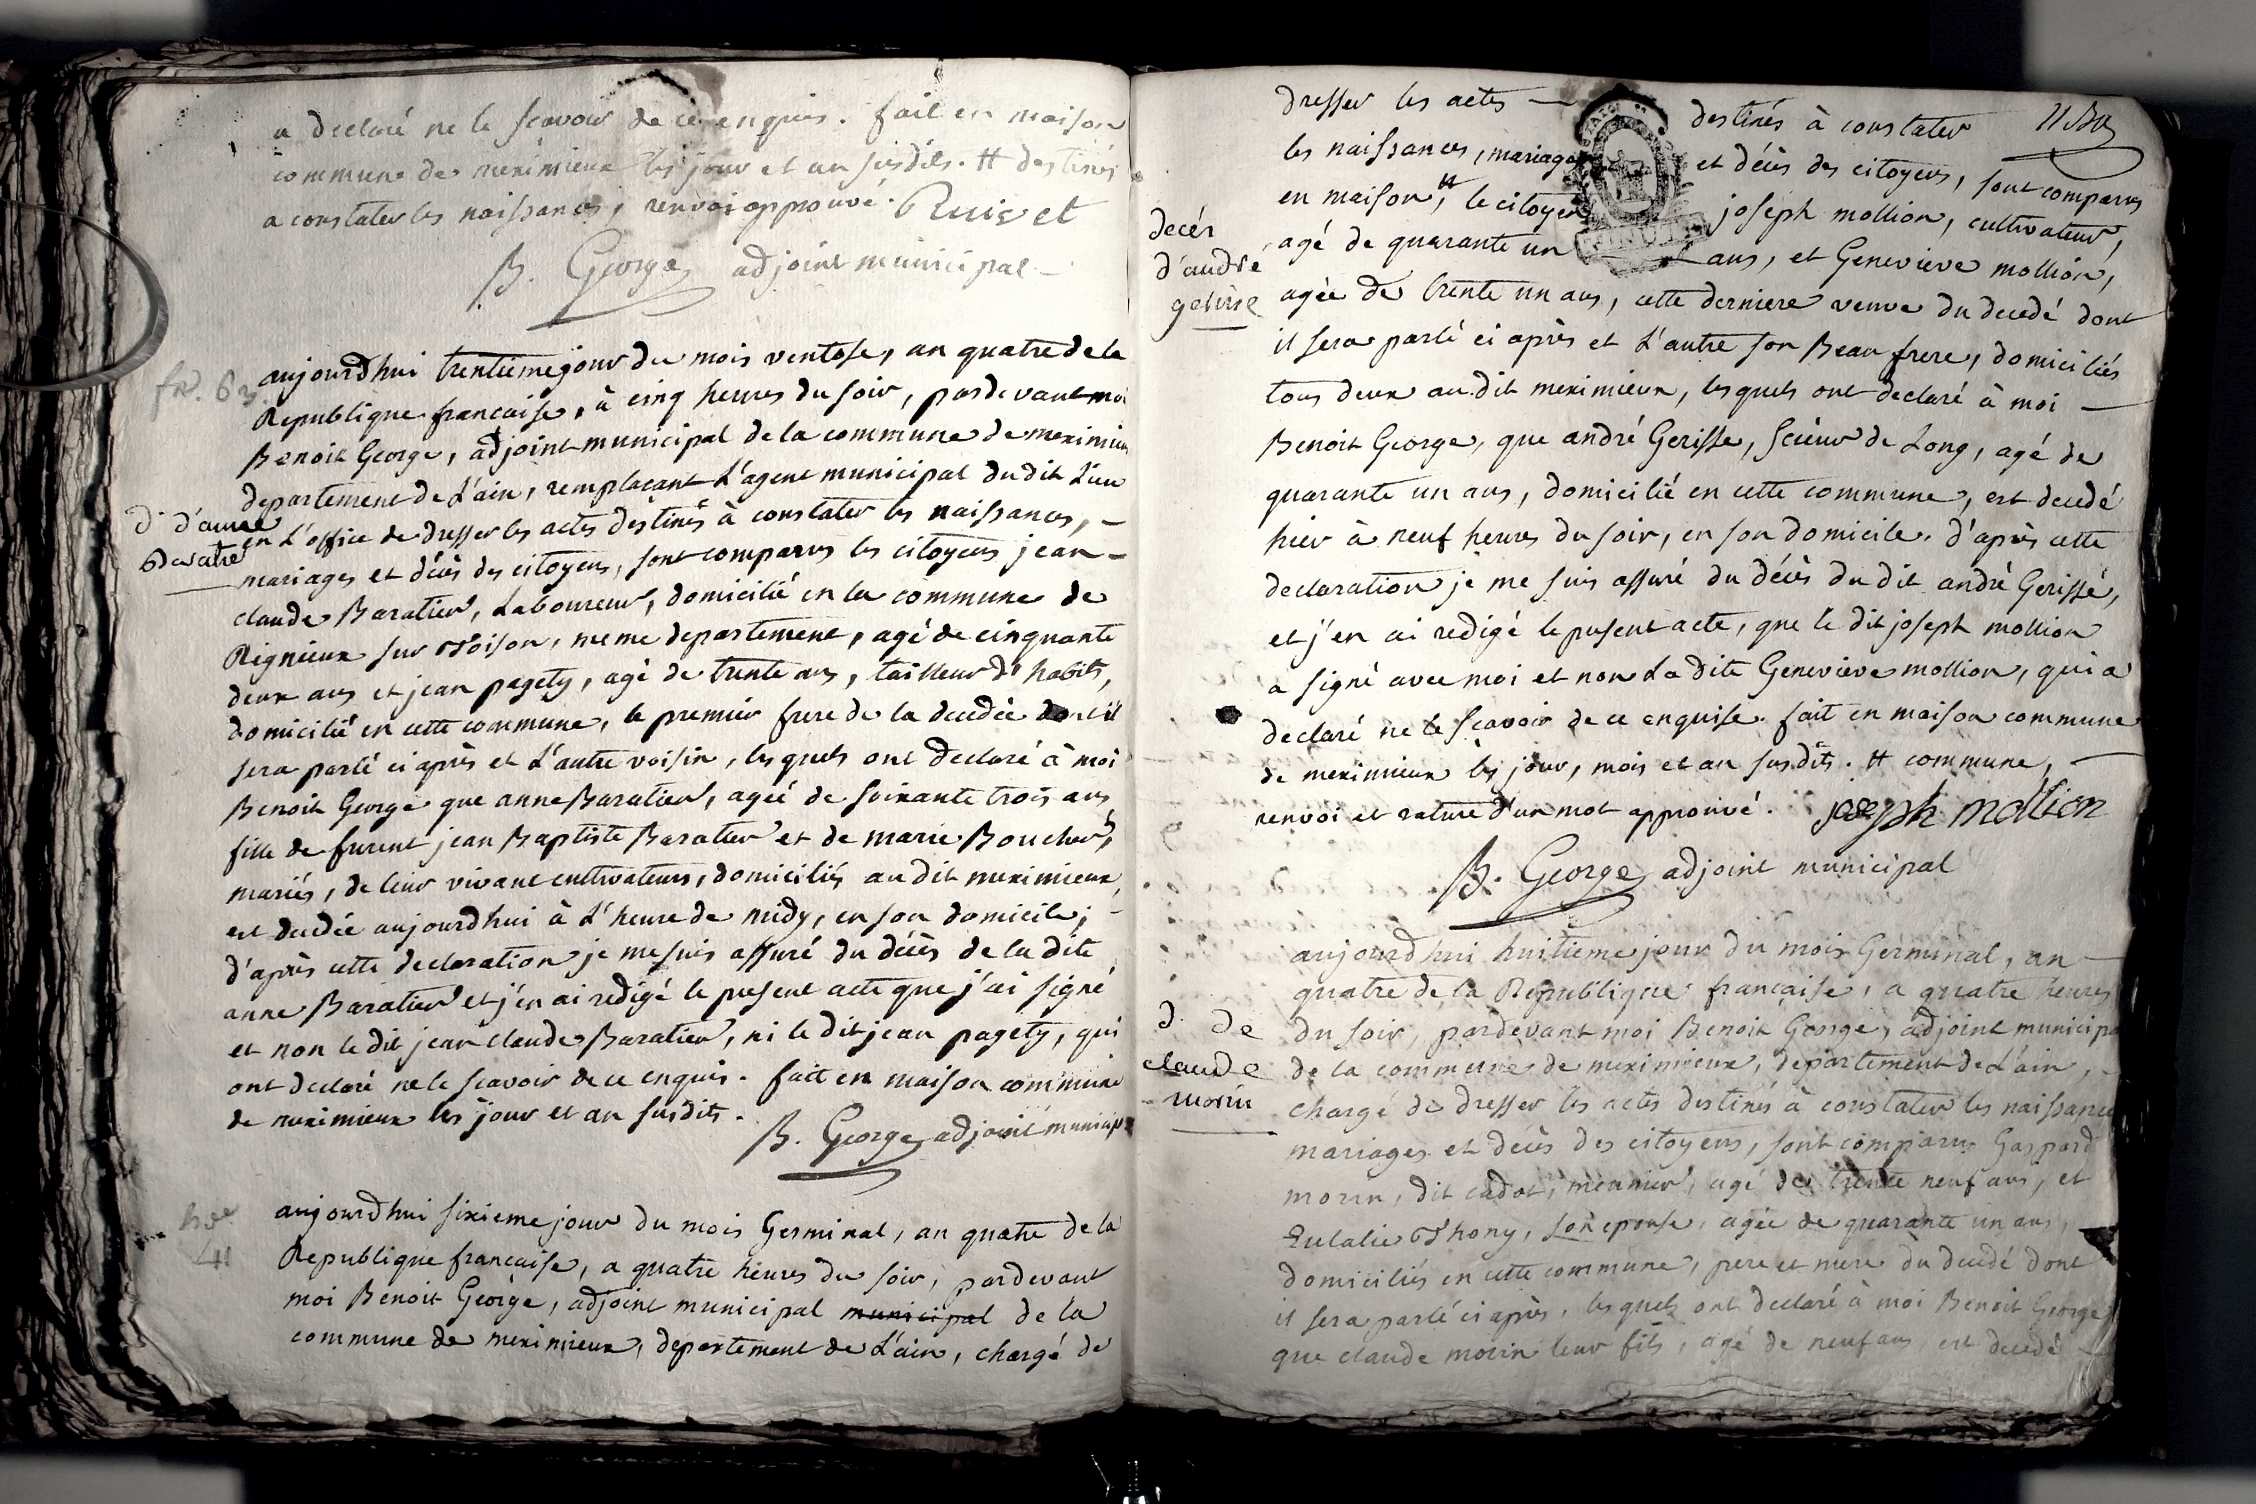 a declaré ne le scavoir de ce enquis. fait en maison
commune de meximieux les jour et an susdits. # destinés
a constater les naissances, renvoi approuvé.
B. George adjoint municipal
fe. 63.
aujourdhui trentieme jour du mois ventose, an quatre de la
Republique francaise, à cinq heures du soir, pardevant moi
Benoit George, adjoint municipal de la commune de meximieux
departement de L'ain, remplacant L'agent municipal du dit Lieu
d. d'anne
Baratié
en L'office de dresser les actes destinés à constater les naissances, –
mariages et décès des citoyens, sont comparus les citoyens jean –
claude Baratier, Laboureur, domicilié en la commune de
Rignieux sur Toison, meme departement, agé de cinquante
deux ans et jean pagety, agé de trente ans, tailleur d'habits,
domicilié en cette commune, le premier frere de la decedée dont il
sera parlé ci après et L'autre voisin, lesquels ont declaré à moi
Benoit George que anne Baratier, agée de soixante trois ans
fille de furent jean Baptiste Baratier et de marie Boucher,
mariés, de leur vivant cultivateurs, domiciliés au dit meximieux,
est decédée aujourdhui à L'heure de midy, en son domicile;
d'après cette declaration je me suis assuré du décès de la dite
anne Baratier et j'en ai redigé le present acte que j'ai signé
et non le dit jean claude Baratier, ni le dit jean pagety, qui
ont declaré ne le scavoir de ce enquis. fait en maison commune
de meximieux les jour et an susdits.
B. George adjoint municipal
41
aujourdhui sixieme jour du mois Germinal, an quatre de la
Republique francaise, a quatre heures du soir, pardevant
moi Benoit George, adjoint municipal municipal de la
commune de meximieux, departement de L'ain, chargé de
dresser les actes – destinés à constater
les naissances, mariages et décès des citoyens, sont comparus
en maison #, le citoyen joseph mollion, cultivateur,
decés
d'andré
gerisse
agé de quarante un ans, et Genevieve mollion,
agée de trente un ans, cette derniere veuve du decedé dont
il sera parlé ci après et L'autre son Beau frere, domiciliés
tous deux au dit meximieux, lesquels ont declaré à moi –
Benoit George, que andré Gerisse, scieur de Long, agé de
quarante un ans, domicilié en cette commune, est decedé
hier à neuf heures du soir, en son domicile. d'après cette
declaration je me suis assuré du décès du dit andré Gerisse,
et j'en ai redigé le present acte, que le dit joseph mollion
a signé avec moi et non La dite Genevieve mollion, qui a
declaré ne le scavoir de ce enquise. fait en maison commune
de meximieux les jour, mois et an susdits. # commune, –
renvoi et rature d'un mot approuvé. joseph mollion
B. George adjoint municipal
aujourdhui huitieme jour du mois Germinal, an –
quatre de la Republique francaise, a quatre heures
d. de
claude
morin
du soir, pardevant moi Benoit George, adjoint municipal
de la commune de meximieux, departement de L'ain,
chargé de dresser les actes destinés à constater les naissances
mariages et décès des citoyens, sont comparus Gaspard
morin, dit cadot, meunier, agé de trente neuf ans, et
Eulalie Thony, son epouse, agée de quarante un ans,
domiciliés en cette commune, pere et mere du decedé dont
il sera parlé ci après, lesquels ont declaré à moi Benoit George
que claude morin leur fils, agé de neuf ans, est decedé